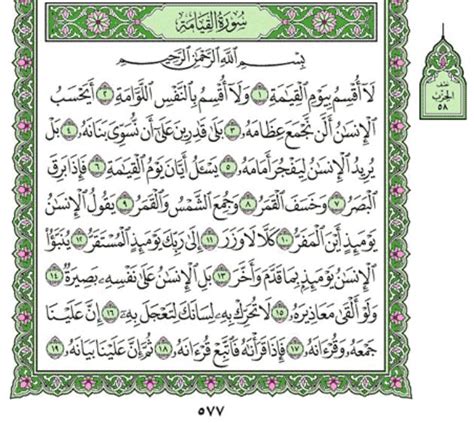 سُورَةُ القِيَامَةِ
بِسْمِ اللَّهِ الرَّحْمَٰنِ الرَّحِيمِ
لَا أُقْسِمُ بِيَوْمِ الْقِيَامَةِ ١ وَلَا أُقْسِمُ بِالنَّفْسِ اللَّوَّامَةِ ٢ أَيَحْسَبُ
الْإِنسَانُ أَلَّن نَّجْمَعَ عِظَامَهُ ٣ بَلَىٰ قَادِرِينَ عَلَىٰ أَن نُّسَوِّيَ بَنَانَهُ ٤ بَلْ
يُرِيدُ الْإِنسَانُ لِيَفْجُرَ أَمَامَهُ ٥ يَسْأَلُ أَيَّانَ يَوْمُ الْقِيَامَةِ ٦ فَإِذَا بَرِقَ
الْبَصَرُ ٧ وَخَسَفَ الْقَمَرُ ٨ وَجُمِعَ الشَّمْسُ وَالْقَمَرُ ٩ يَقُولُ الْإِنسَانُ
يَوْمَئِذٍ أَيْنَ الْمَفَرُّ ١٠ كَلَّا لَا وَزَرَ ١١ إِلَىٰ رَبِّكَ يَوْمَئِذٍ الْمُسْتَقَرُّ ١٢ يُنَبَّأُ
الْإِنسَانُ يَوْمَئِذٍ بِمَا قَدَّمَ وَأَخَّرَ ١٣ بَلِ الْإِنسَانُ عَلَىٰ نَفْسِهِ بَصِيرَةٌ ١٤
وَلَوْ أَلْقَىٰ مَعَاذِيرَهُ ١٥ لَا تُحَرِّكْ بِهِ لِسَانَكَ لِتَعْجَلَ بِهِ ١٦ إِنَّ عَلَيْنَا
جَمْعَهُ وَقُرْآنَهُ ١٧ فَإِذَا قَرَأْنَاهُ فَاتَّبِعْ قُرْآنَهُ ١٨ ثُمَّ إِنَّ عَلَيْنَا بَيَانَهُ ١٩
نصف
الحزب
٥٨
٥٧٧